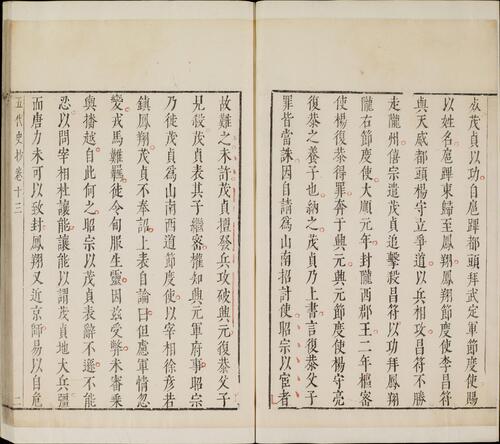 成茂貞以功自扈蹕都頭拜武定軍節度使賜
以姓名扈蹕東歸至鳳翔鳳翔節度使李昌符
與天威都頭楊守立爭道以兵相攻昌符不勝
走隴州僖宗遣茂貞追擊殺昌符以功拜鳳翔
隴右節度使大順元年封隴西郡王二年樞密
使楊復恭得罪奔于興元興元節度使楊守亮
復恭之養子也納之茂貞乃上書言復恭父子
罪皆當誅因自請爲山南招討使昭宗以宦者
故難之未許茂貞擅發兵攻破興元復恭父子
見殺茂貞表其子繼密權知興元軍府事昭宗
乃徙茂貞爲山南西道節度使以宰相徐彥若
鎮鳳翔茂貞不奉詔上表自論曰但慮軍情忽
變戎馬難羈徒令甸服生靈因茲受弊未審乘
輿播越自此何之昭宗以茂貞表辭不遜不能
忍以問宰相杜讓能讓能以謂茂貞地大兵彊
而唐力未可以致討鳳翔又近京師易以自危
五代史抄 卷十三 二